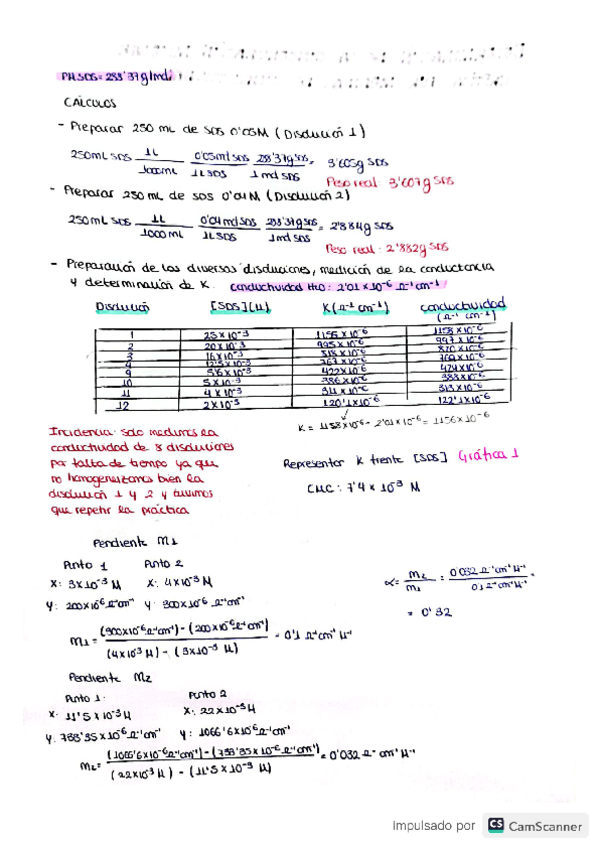 PM SDS = 288'37 g/mol
CÁLCULOS
- Preparar 250 mL de SDS 0'05M (Disolución 1)
250 mL SDS 1L/1000 mL 0'05 mol SDS/1L SDS 288'37g SDS/1 mol SDS = 3'605 g SDS
Peso real: 3'607 g SDS
- Preparar 250 mL de SDS 0'04M (Disolución 2)
250 mL SDS 1L/1000 mL 0'04 mol SDS/1L SDS 288'37g SDS/1mol SDS = 2'884 g SDS
Peso real: 2'882 g SDS
- Preparación de las diversas disoluciones, medición de la conductancia
y determinación de K. Conductividad H2O: 2'01 x 10⁻⁶ Ω⁻¹ cm⁻¹
Disolución [SDS] (M) K (Ω⁻¹ cm⁻¹) conductividad (Ω⁻¹ cm⁻¹)
1 25 x 10⁻³ 1156 x 10⁻⁶ 1158 x 10⁻⁶
2 20 x 10⁻³ 995 x 10⁻⁶ 997 x 10⁻⁶
3 16 x 10⁻³ 818 x 10⁻⁶ 820 x 10⁻⁶
4 12'5 x 10⁻³
9 5'6 x 10⁻³ 422 x 10⁻⁶ 424 x 10⁻⁶
10 5 x 10⁻³ 386 x 10⁻⁶ 388 x 10⁻⁶
11 4 x 10⁻³ 311 x 10⁻⁶ 313 x 10⁻⁶
12 2 x 10⁻³ 120'1 x 10⁻⁶ 122'1 x 10⁻⁶
K = 1158 x 10⁻⁶ - 2'01 x 10⁻⁶ = 1156 x 10⁻⁶
Incidencia: solo medimos la
conductividad de 8 disoluciones
por falta de tiempo ya que
no homogeneizamos bien la
disolución 1 y 2 y tuvimos
que repetir la práctica
Representar K frente [SDS] Gráfica 1
CMC: 7'4 x 10⁻³ M
Pendiente m1
Punto 1 Punto 2
X: 3x10⁻³ M X: 4x10⁻³ M
Y: 200x10⁻⁶ Ω⁻¹cm⁻¹ Y: 300x10⁻⁶ Ω⁻¹cm⁻¹
m1 = (300x10⁻⁶ Ω⁻¹cm⁻¹) - (200x10⁻⁶ Ω⁻¹cm⁻¹) / (4x10⁻³ M) - (3x10⁻³ M) = 0'1 Ω⁻¹cm⁻¹ M⁻¹
α = m2/m1 = 0'032 Ω⁻¹cm⁻¹M⁻¹ / 0'1 Ω⁻¹cm⁻¹M⁻¹ =
= 0'32
Pendiente m2
Punto 1: Punto 2
X: 11'5 x 10⁻³ M X: 22 x 10⁻³ M
Y: 733'35 x 10⁻⁶ Ω⁻¹cm⁻¹ Y: 1066'6 x 10⁻⁶ Ω⁻¹cm⁻¹
m2 = (1066'6x10⁻⁶ Ω⁻¹cm⁻¹) - (733'35 x 10⁻⁶ Ω⁻¹cm⁻¹) / (22x10⁻³ M) - (11'5 x 10⁻³ M) = 0'032 Ω⁻¹ cm⁻¹ M⁻¹
Impulsado por CS CamScanner